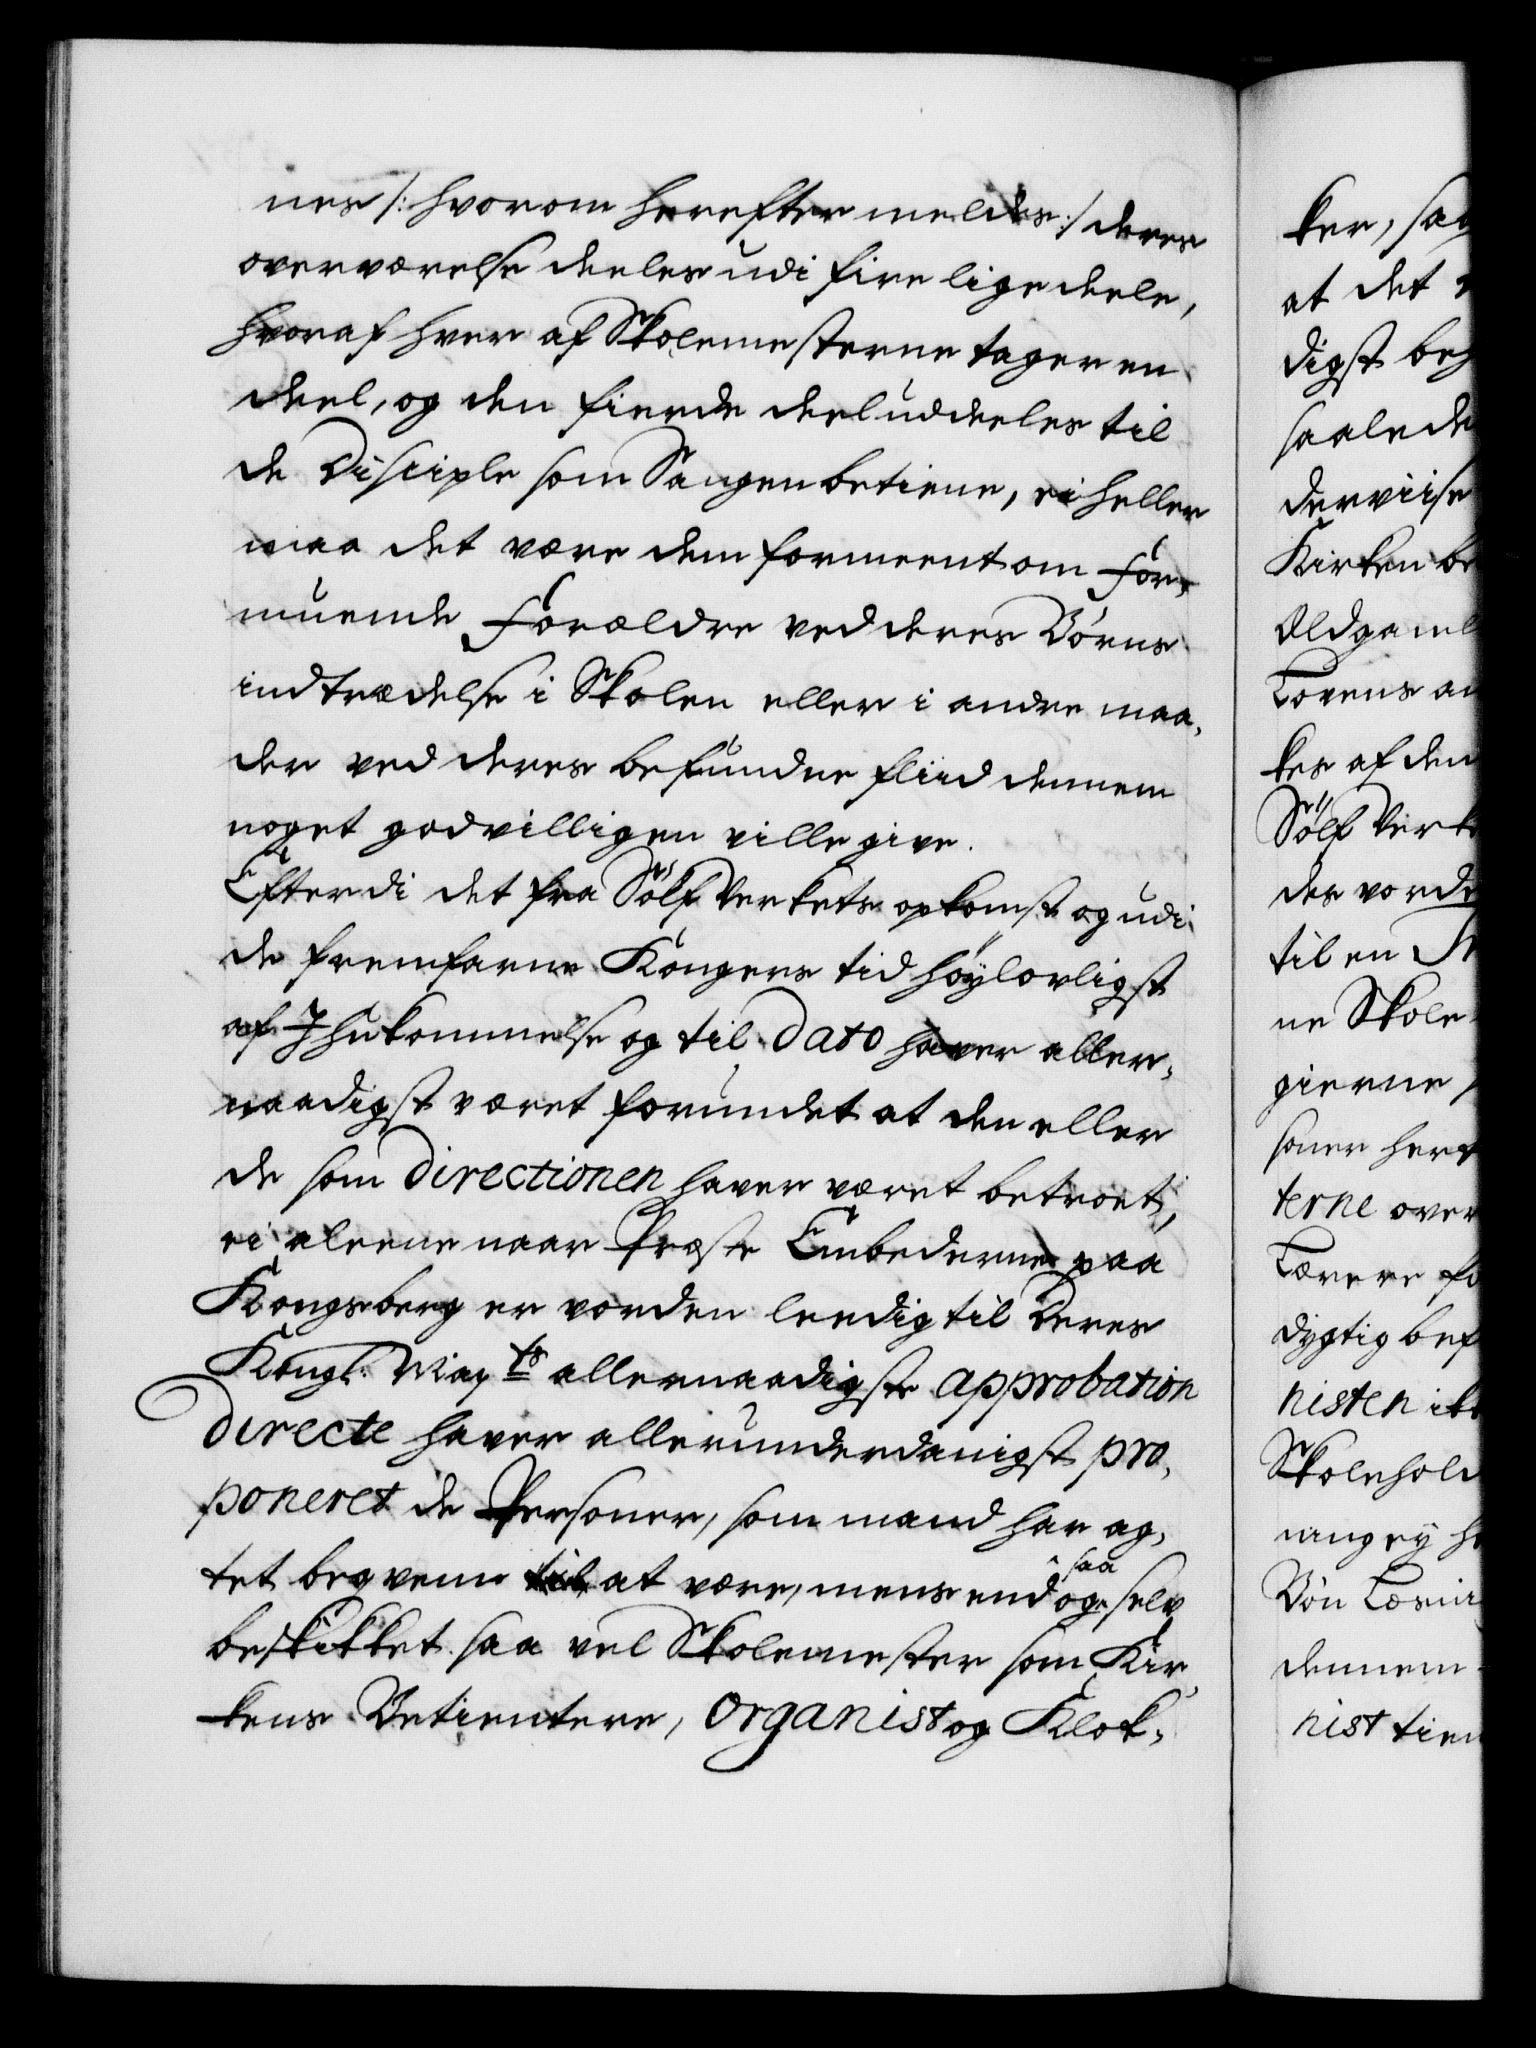 nes /: hvorom herefter meldes :/ deres
overværelse deeles udi fire lige deele,
hvoraf hver af Skolemesterne tager en
deel, og den fierde deel uddeeles til
de Disciple som Sangen betiene, ei heller
maa det være dem formeent om For-
muende Forældre ved deres Børns
indtrædelse i Skolen eller i andre maa-
der ved deres befundne fliid dennem
noget godvilligen ville give.
Efterdi det fra Sølf Verkets opkomst og udi
de fremfarne Kongers tid høylovligst
af Ihukommelse og til Dato haver aller-
naadigst været forundet at den eller
de som Directionen haver været betroet,
ei aleene naar Præste Embederne paa
Kongsberg er vorden leedig til Deres
Kongl: May ts allernaadigste approbation
Directe haver allerunderdanigst pro-
poneret de Personer, som mand har ag-
tet beqvem at være, mens end og saa selv
beskikket saa vel Skolemester som Kir-
kens Betientere, Organist og Klok-
ker, saa
at det
digst beh
saalede
derviise
Kirken be
Oldgaml
Lovens an
kes af den
Sølf Verke
des vorde
til en
ne Skole
gierne
soner her
terne over
Lærere fo
dygtig bef
nisten ik
Skolehold
nang ey h
Bøn Læsni
dennem
nist tien